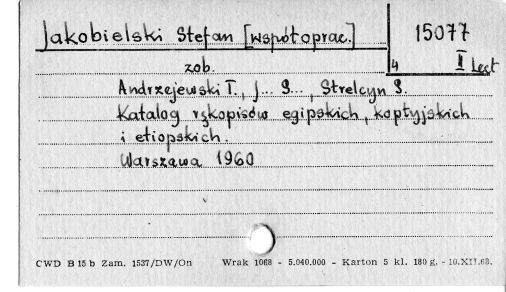 Jakobielski Stefan [współoprac.]
15077
4 II Lect
zob.
Andrzejewski T., J... S..., Strelcyn S.
Katalog rękopisów egipskich, koptyjskich
i etiopskich.
Warszawa 1960
CWD B 15 b Zam. 1537/DW/On Wrak 1068 - 5.040.000 - Karton 5 kl. 180 g. - 10.XII.68.